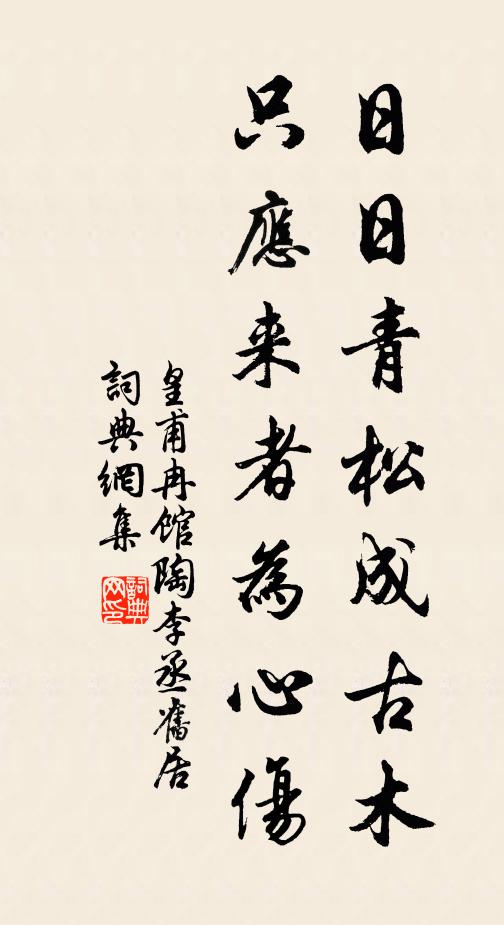 日日青松成古木
只應来者為心傷
皇甫冉館陶李丞舊居
詞典網集
詞典网印